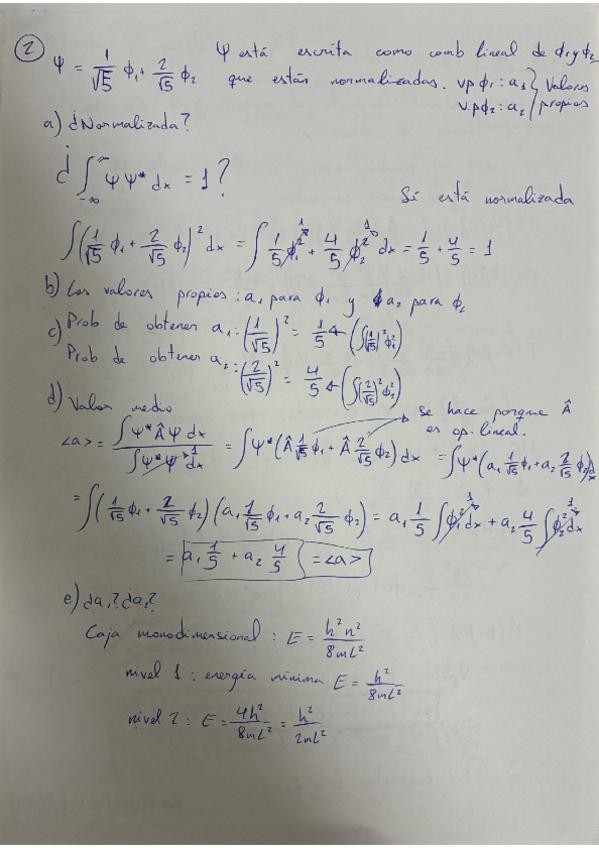 ② Ψ = 1/√5 ϕ₁ + 2/√5 ϕ₂ Ψ está escrita como comb lineal de ϕ₁ y ϕ₂
que están normalizadas. v.p ϕ₁ : a₁ } Valores
v.p ϕ₂ : a₂ } propios
a) ¿Normalizada?
¿ ∫_{-∞}^{∞} Ψ Ψ* dx = 1 ?
Sí está normalizada
∫ (1/√5 ϕ₁ + 2/√5 ϕ₂)² dx = ∫ 1/5 ϕ₁² + 4/5 ϕ₂² dx = 1/5 + 4/5 = 1
b) Los valores propios : a₁ para ϕ₁ y a₂ para ϕ₂
c) Prob de obtener a₁ : (1/√5)² = 1/5 ← (∫(1/√5)² ϕ₁²)
Prob de obtener a₂ : (2/√5)² = 4/5 ← (∫(2/√5)² ϕ₂²)
d) Valor medio
se hace porque Â
es op. lineal.
<a> = ∫Ψ* Â Ψ dx / ∫Ψ* Ψ dx = ∫Ψ* (Â 1/√5 ϕ₁ + Â 2/√5 ϕ₂) dx = ∫Ψ* (a₁ 1/√5 ϕ₁ + a₂ 2/√5 ϕ₂) dx
= ∫ (1/√5 ϕ₁ + 2/√5 ϕ₂) (a₁ 1/√5 ϕ₁ + a₂ 2/√5 ϕ₂) = a₁ 1/5 ∫ϕ₁² dx + a₂ 4/5 ∫ϕ₂² dx
= a₁ 1/5 + a₂ 4/5 = <a>
e) ¿a₁? ¿a₂?
Caja monodimensional : E = h²n²/8mL²
nivel 1 : energía mínima E = h²/8mL²
nivel 2 : E = 4h²/8mL² = h²/2mL²